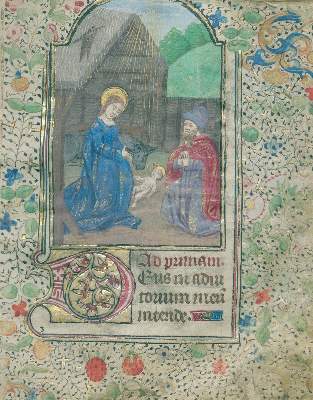 Ad primam.
Eus in adiu
torium meu
intende.